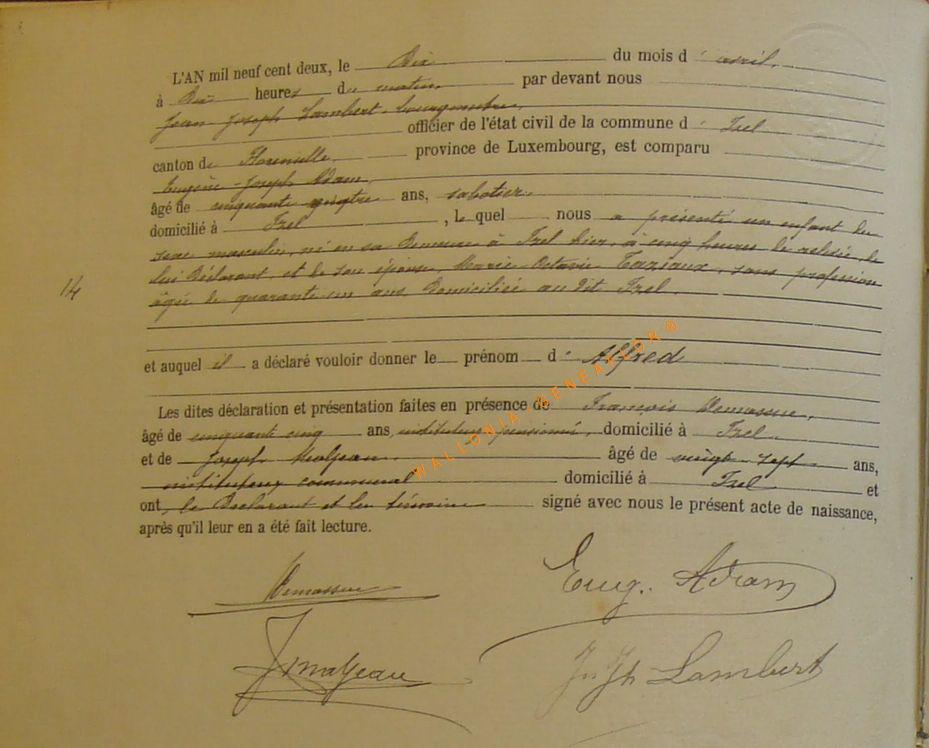 L'AN mil neuf cent deux, le Dix du mois d'avril,
à Dix heures du matin par devant nous
Jean Joseph Lambert, bourgmestre,
officier de l'état civil de la commune d'Izel
canton de Florenville province de Luxembourg, est comparu
Eugène-Joseph Adam,
âgé de cinquante quatre ans, sabotier.
domicilié à Izel, Le quel nous a présenté un enfant du
sexe masculin, né en sa Demeure à Izel hier, à cinq heures de relevée, de
lui Déclarant et de son épouse, Marie-Octavie Taziaux, sans profession
âgée de quarante un ans Domiciliée au dit Izel.
14
et auquel il a déclaré vouloir donner le prénom d'Alfred
Les dites déclaration et présentation faites en présence de François
âgé de cinquante cinq ans, instituteur pensionné, domicilié à Izel.
et de Joseph Maljean. âgé de vingt-sept ans,
instituteur communal domicilié à Izel et
ont, le Déclarant et les témoins signé avec nous le présent acte de naissance,
après qu'il leur en a été fait lecture.
Eug. Adam
J Maljean
Jn Jh Lambert
WALLONIA-GENEALOR®